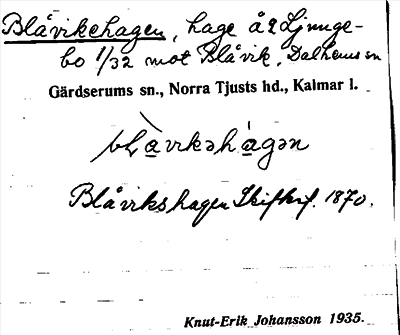 Blåvikehagen, hage å 2 Ljunge-
bo 1/32 mot Blåvik, Dalhems sn
Gärdserums sn., Norra Tjusts hd., Kalmar l.
blàvikəhágən
Blåvikshagen Skifteskif. 1870.
Knut-Erik Johansson 1935.